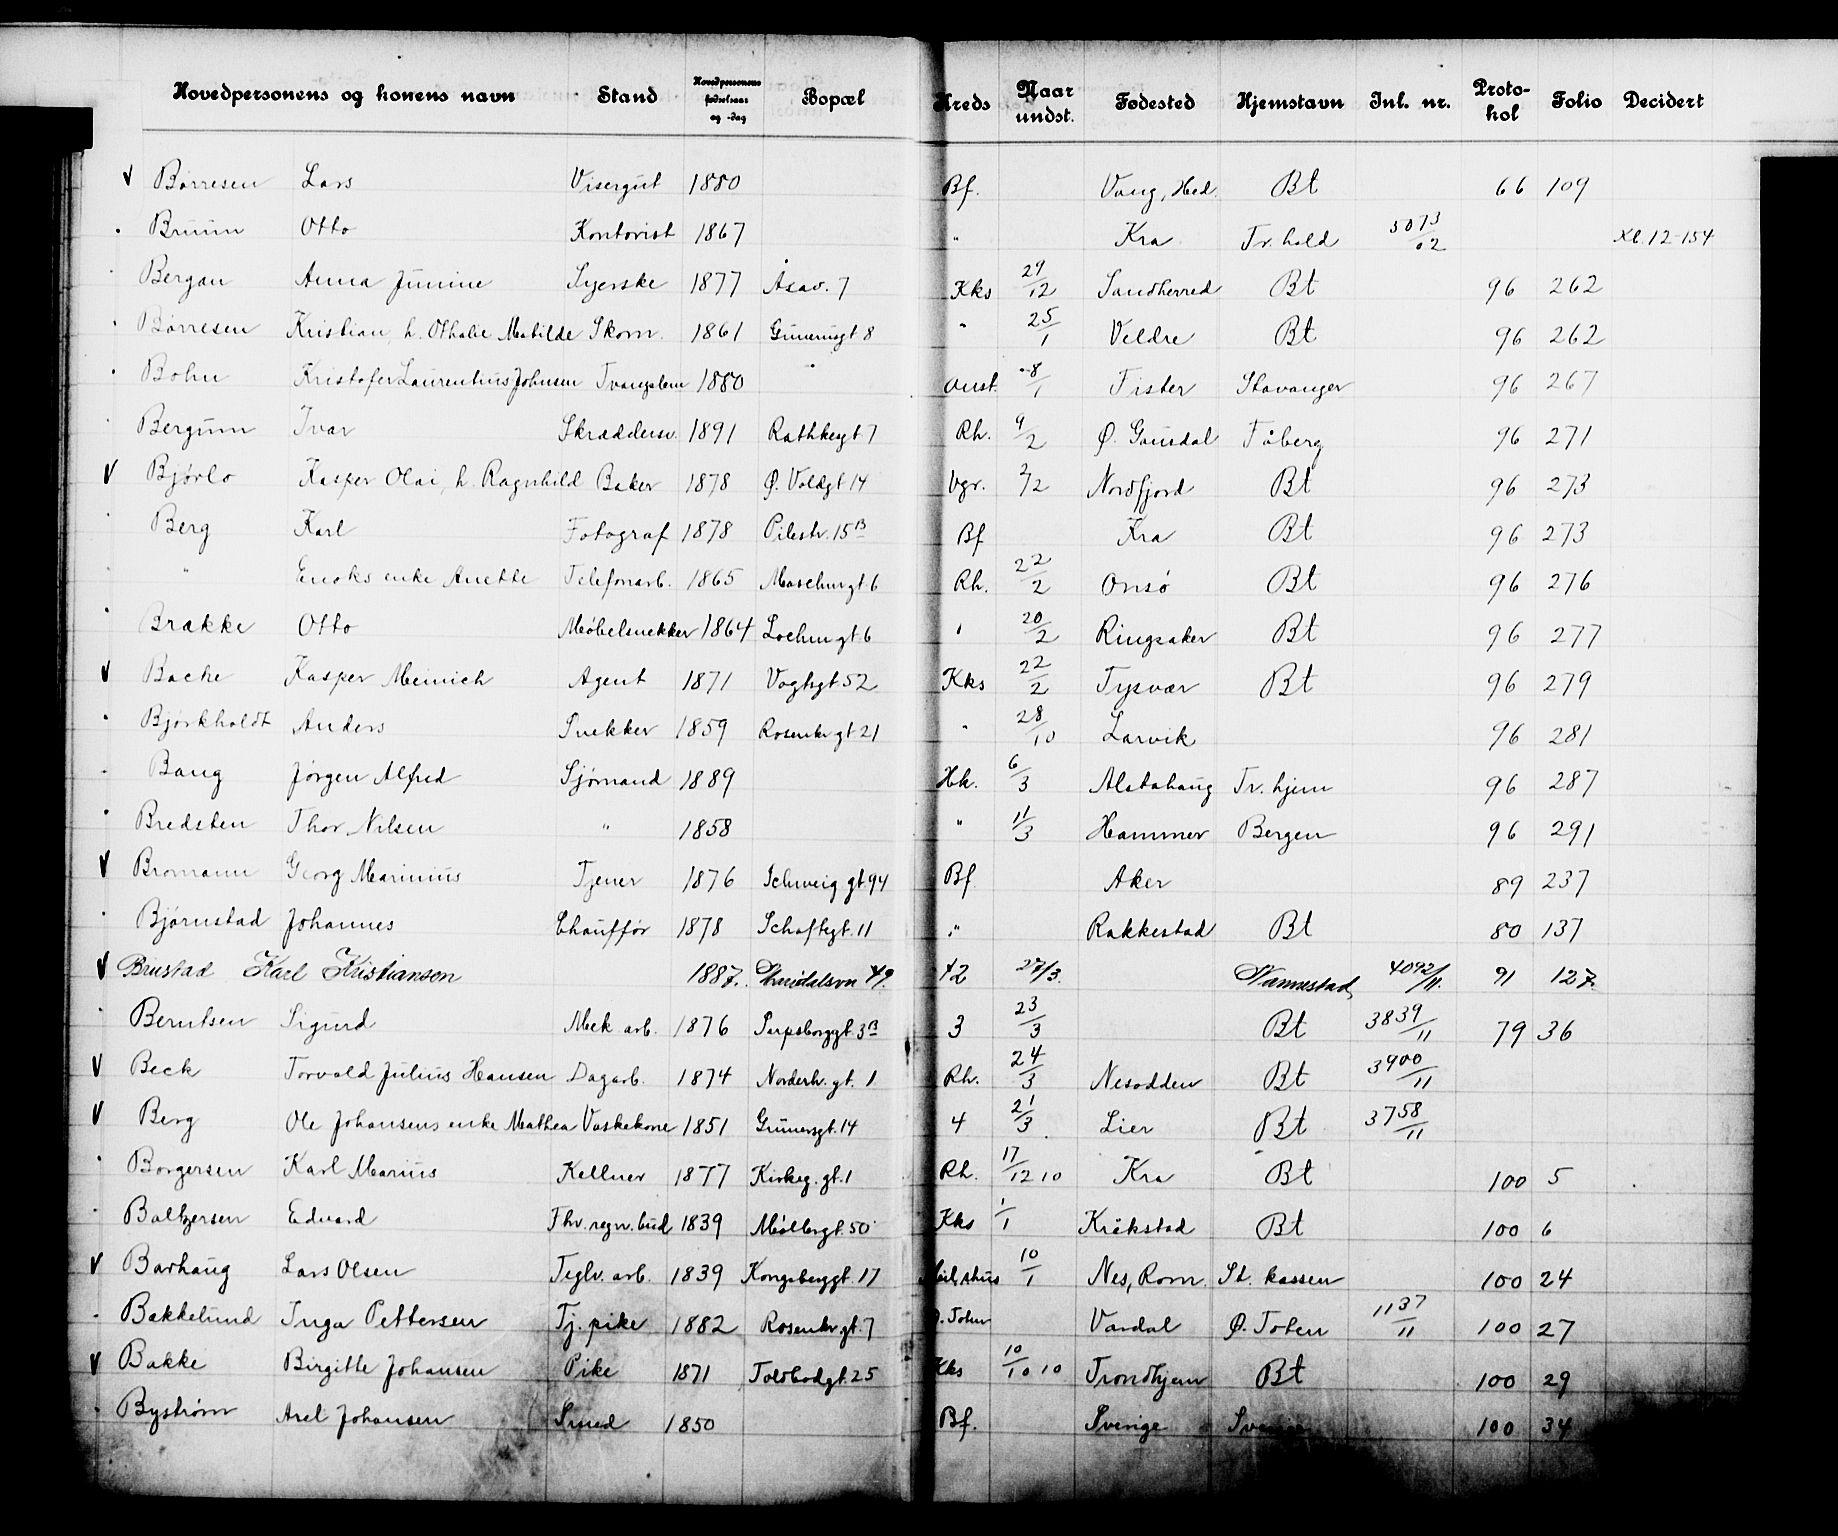 Hovedpersonens og konens navn Stand Hovedpersonens fødselsaar og -dag Bopæl Kreds Naar undst. Fødested Hjemstavn Inl. nr. Protokol Folio Decidert
Børresen Lars Visergut 1880 Bf. Vang, Hed. Bt 66 109
Bruun Otto Kontorist 1867 " Kra Tr. hold 5073/02 Kl. 12-154
Bergan Anna Junine Syerske 1877 Åsav. 7 Kks 29/12 Sandherred Bt 96 262
Børresen Kristian, h. Othalie Matilde Skom. 1861 Grünersgt 8 " 25/1 Veldre Bt 96 262
Bohn Kristofer Laurentius Johnsen Tvangslem 1880 " anst. 8/1 Fister Stavanger 96 267
Bergum Ivar Skræddersv. 1891 Rathkesgt 7 Rh. 9/2 Ø. Gausdal Fåberg 96 271
Bjørlo Kasper Olai, h. Ragnhild Baker 1878 Ø. Voldgt 14 Vgr. 2/2 Nordfjord Bt 96 273
Berg Karl Fotograf 1878 Pilestr. 15B Bf Kra Bt 96 273
" Enoks enke Anette Telefonarb. 1865 Maschusgt 6 Rh. 22/2 Onsø Bt 96 276
Brække Otto Møbelsnekker 1864 Lochusgt 6 " 20/2 Ringsaker Bt 96 277
Bache Kasper Meinich Agent 1871 Vogtsgt 52 Kks 22/2 Tysvær Bt 96 279
Bjørkholdt Anders Snekker 1859 Rosenkr gt 21 " 28/10 Larvik 96 281
Bang Jørgen Alfred Sjømand 1889 Hk. 6/3 Alstahaug Tr. hjem 96 287
Bredsten Thor Nilsen " 1858 " 11/3 Hammer Bergen 96 291
Bromann Georg Marinius Tjener 1876 Schweig gt 94 Bf Aker 89 237
Bjørnstad Johannes Chauffør 1878 Schaftegt. 11 " Rakkestad Bt 80 137
Brustad Karl Kristiansen 1887. 49. 42 27/3. Nannestad, 4092/11. 91 127.
Berntsen Sigurd Mek arb. 1876 Sarpsborggt. 3B 3 23/3 Bt 3839/11 79 36
Beck Torvald Julius Hansen Dagarb. 1874 Norderh. gt. 1 Rh. 24/3 Nesodden Bt 3900/11
Berg Ole Johansens enke Mathea Vaskekone 1851 Grünersgt. 14 4 21/3. Lier Bt 3758/11
Borgersen Karl Marius Kellner 1877 Kirkeg. gt. 1 Rh. 17/12 10 Kra Bt 100 5
Baltzersen Edvard Fhv. regn. bud 1839 Møllergt. 50 Kks 1/1 Kråkstad Bt 100 6
Barhaug Lars Olsen Teglv. arb. 1839 Kongsberggt. 17 10/1 Nes, Rom. St. kassen 100 24
Bakkelund Inga Pettersen Tj. pike 1882 Rosenkr gt. 7 Ø. Toten Vardal Ø. Toten 1137/11 100 27
Bakke Birgitte Johansen Pike 1871 Toldbodgt. 25 Kks 10/10 10 Trondhjem Bt 100 29
Bystrøm Axel Johansen Smed 1850 Bf. Sverige Sverige 100 34